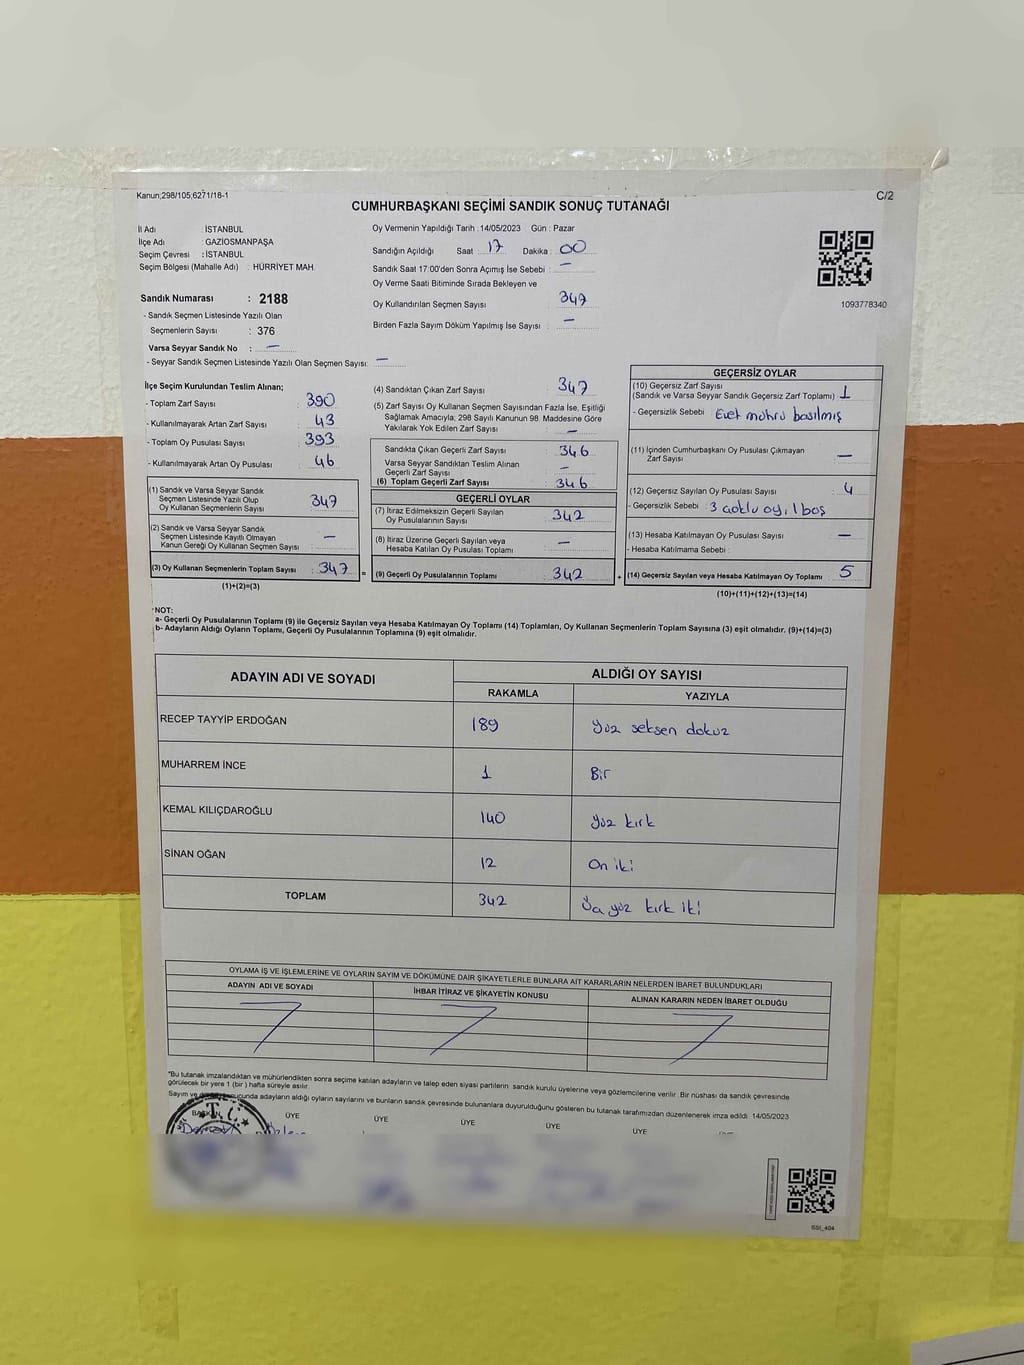 Kanun;298/105;6271/18-1
C/2
CUMHURBAŞKANI SEÇİMİ SANDIK SONUÇ TUTANAĞI
İl Adı : İSTANBUL
İlçe Adı : GAZİOSMANPAŞA
Seçim Çevresi : İSTANBUL
Seçim Bölgesi (Mahalle Adı) : HÜRRİYET MAH.
Sandık Numarası : 2188
- Sandık Seçmen Listesinde Yazılı Olan
Seçmenlerin Sayısı : 376
Varsa Seyyar Sandık No : —
- Seyyar Sandık Seçmen Listesinde Yazılı Olan Seçmen Sayısı: —
Oy Vermenin Yapıldığı Tarih :14/05/2023 Gün : Pazar
Sandığın Açıldığı Saat : 17 Dakika : 00
Sandık Saat 17:00'den Sonra Açımış İse Sebebi : —
Oy Verme Saati Bitiminde Sırada Bekleyen ve
Oy Kullandırılan Seçmen Sayısı : 347
Birden Fazla Sayım Döküm Yapılmış İse Sayısı : —
1093778340
İlçe Seçim Kurulundan Teslim Alınan;
- Toplam Zarf Sayısı : 390
- Kullanılmayarak Artan Zarf Sayısı : 43
- Toplam Oy Pusulası Sayısı : 393
- Kullanılmayarak Artan Oy Pusulası : 46
(1) Sandık ve Varsa Seyyar Sandık
Seçmen Listesinde Yazılı Olup
Oy Kullanan Seçmenlerin Sayısı : 347
(2) Sandık ve Varsa Seyyar Sandık
Seçmen Listesinde Kayıtlı Olmayan
Kanun Gereği Oy Kullanan Seçmen Sayısı : —
(3) Oy Kullanan Seçmenlerin Toplam Sayısı : 347
(1)+(2)=(3)
(4) Sandıktan Çıkan Zarf Sayısı : 347
(5) Zarf Sayısı Oy Kullanan Seçmen Sayısından Fazla İse, Eşitliği
Sağlamak Amacıyla, 298 Sayılı Kanunun 98. Maddesine Göre
Yakılarak Yok Edilen Zarf Sayısı : —
Sandıkta Çıkan Geçerli Zarf Sayısı : 346
Varsa Seyyar Sandıktan Teslim Alınan
Geçerli Zarf Sayısı : —
(6) Toplam Geçerli Zarf Sayısı : 346
GEÇERLİ OYLAR
(7) İtiraz Edilmeksizin Geçerli Sayılan
Oy Pusulalarının Sayısı : 342
(8) İtiraz Üzerine Geçerli Sayılan veya
Hesaba Katılan Oy Pusulası Toplamı : —
= (9) Geçerli Oy Pusulalarının Toplamı : 342
GEÇERSİZ OYLAR
(10) Geçersiz Zarf Sayısı
(Sandık ve Varsa Seyyar Sandık Geçersiz Zarf Toplamı) : 1
- Geçersizlik Sebebi : Evet mührü basılmış
(11) İçinden Cumhurbaşkanı Oy Pusulası Çıkmayan
Zarf Sayısı : —
(12) Geçersiz Sayılan Oy Pusulası Sayısı : 4
- Geçersizlik Sebebi : 3 çoklu oy, 1 boş
(13) Hesaba Katılmayan Oy Pusulası Sayısı : —
- Hesaba Katılmama Sebebi :
+ (14) Geçersiz Sayılan veya Hesaba Katılmayan Oy Toplamı : 5
(10)+(11)+(12)+(13)=(14)
NOT:
a- Geçerli Oy Pusulalarının Toplamı (9) ile Geçersiz Sayılan veya Hesaba Katılmayan Oy Toplamı (14) Toplamları, Oy Kullanan Seçmenlerin Toplam Sayısına (3) eşit olmalıdır. (9)+(14)=(3)
b- Adayların Aldığı Oyların Toplamı, Geçerli Oy Pusulalarının Toplamına (9) eşit olmalıdır.
ADAYIN ADI VE SOYADI ALDIĞI OY SAYISI
RAKAMLA YAZIYLA
RECEP TAYYİP ERDOĞAN 189 Yüz seksen dokuz
MUHARREM İNCE 1 Bir
KEMAL KILIÇDAROĞLU 140 Yüz kırk
SİNAN OĞAN 12 On iki
TOPLAM 342 Üç yüz kırk iki
OYLAMA İŞ VE İŞLEMLERİNE VE OYLARIN SAYIM VE DÖKÜMÜNE DAİR ŞİKAYETLERLE BUNLARA AİT KARARLARIN NELERDEN İBARET BULUNDUKLARI
ADAYIN ADI VE SOYADI İHBAR İTİRAZ VE ŞİKAYETİN KONUSU ALINAN KARARIN NEDEN İBARET OLDUĞU
*Bu tutanak imzalandıktan ve mühürlendikten sonra seçime katılan adayların ve talep eden siyasi partilerin sandık kurulu üyelerine veya gözlemcilerine verilir. Bir nüshası da sandık çevresinde
görülecek bir yere 1 (bir ) hafta süreyle asılır.
Sayım ve adayların aldığı oyların sayılarını ve bunların sandık çevresinde bulunanlara duyurulduğunu gösteren bu tutanak tarafımızdan düzenlenerek imza edildi. 14/05/2023
BAŞKAN ÜYE ÜYE ÜYE ÜYE ÜYE
T.C.
SSI_404